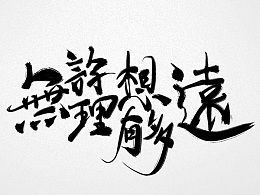 無論理想有多遠